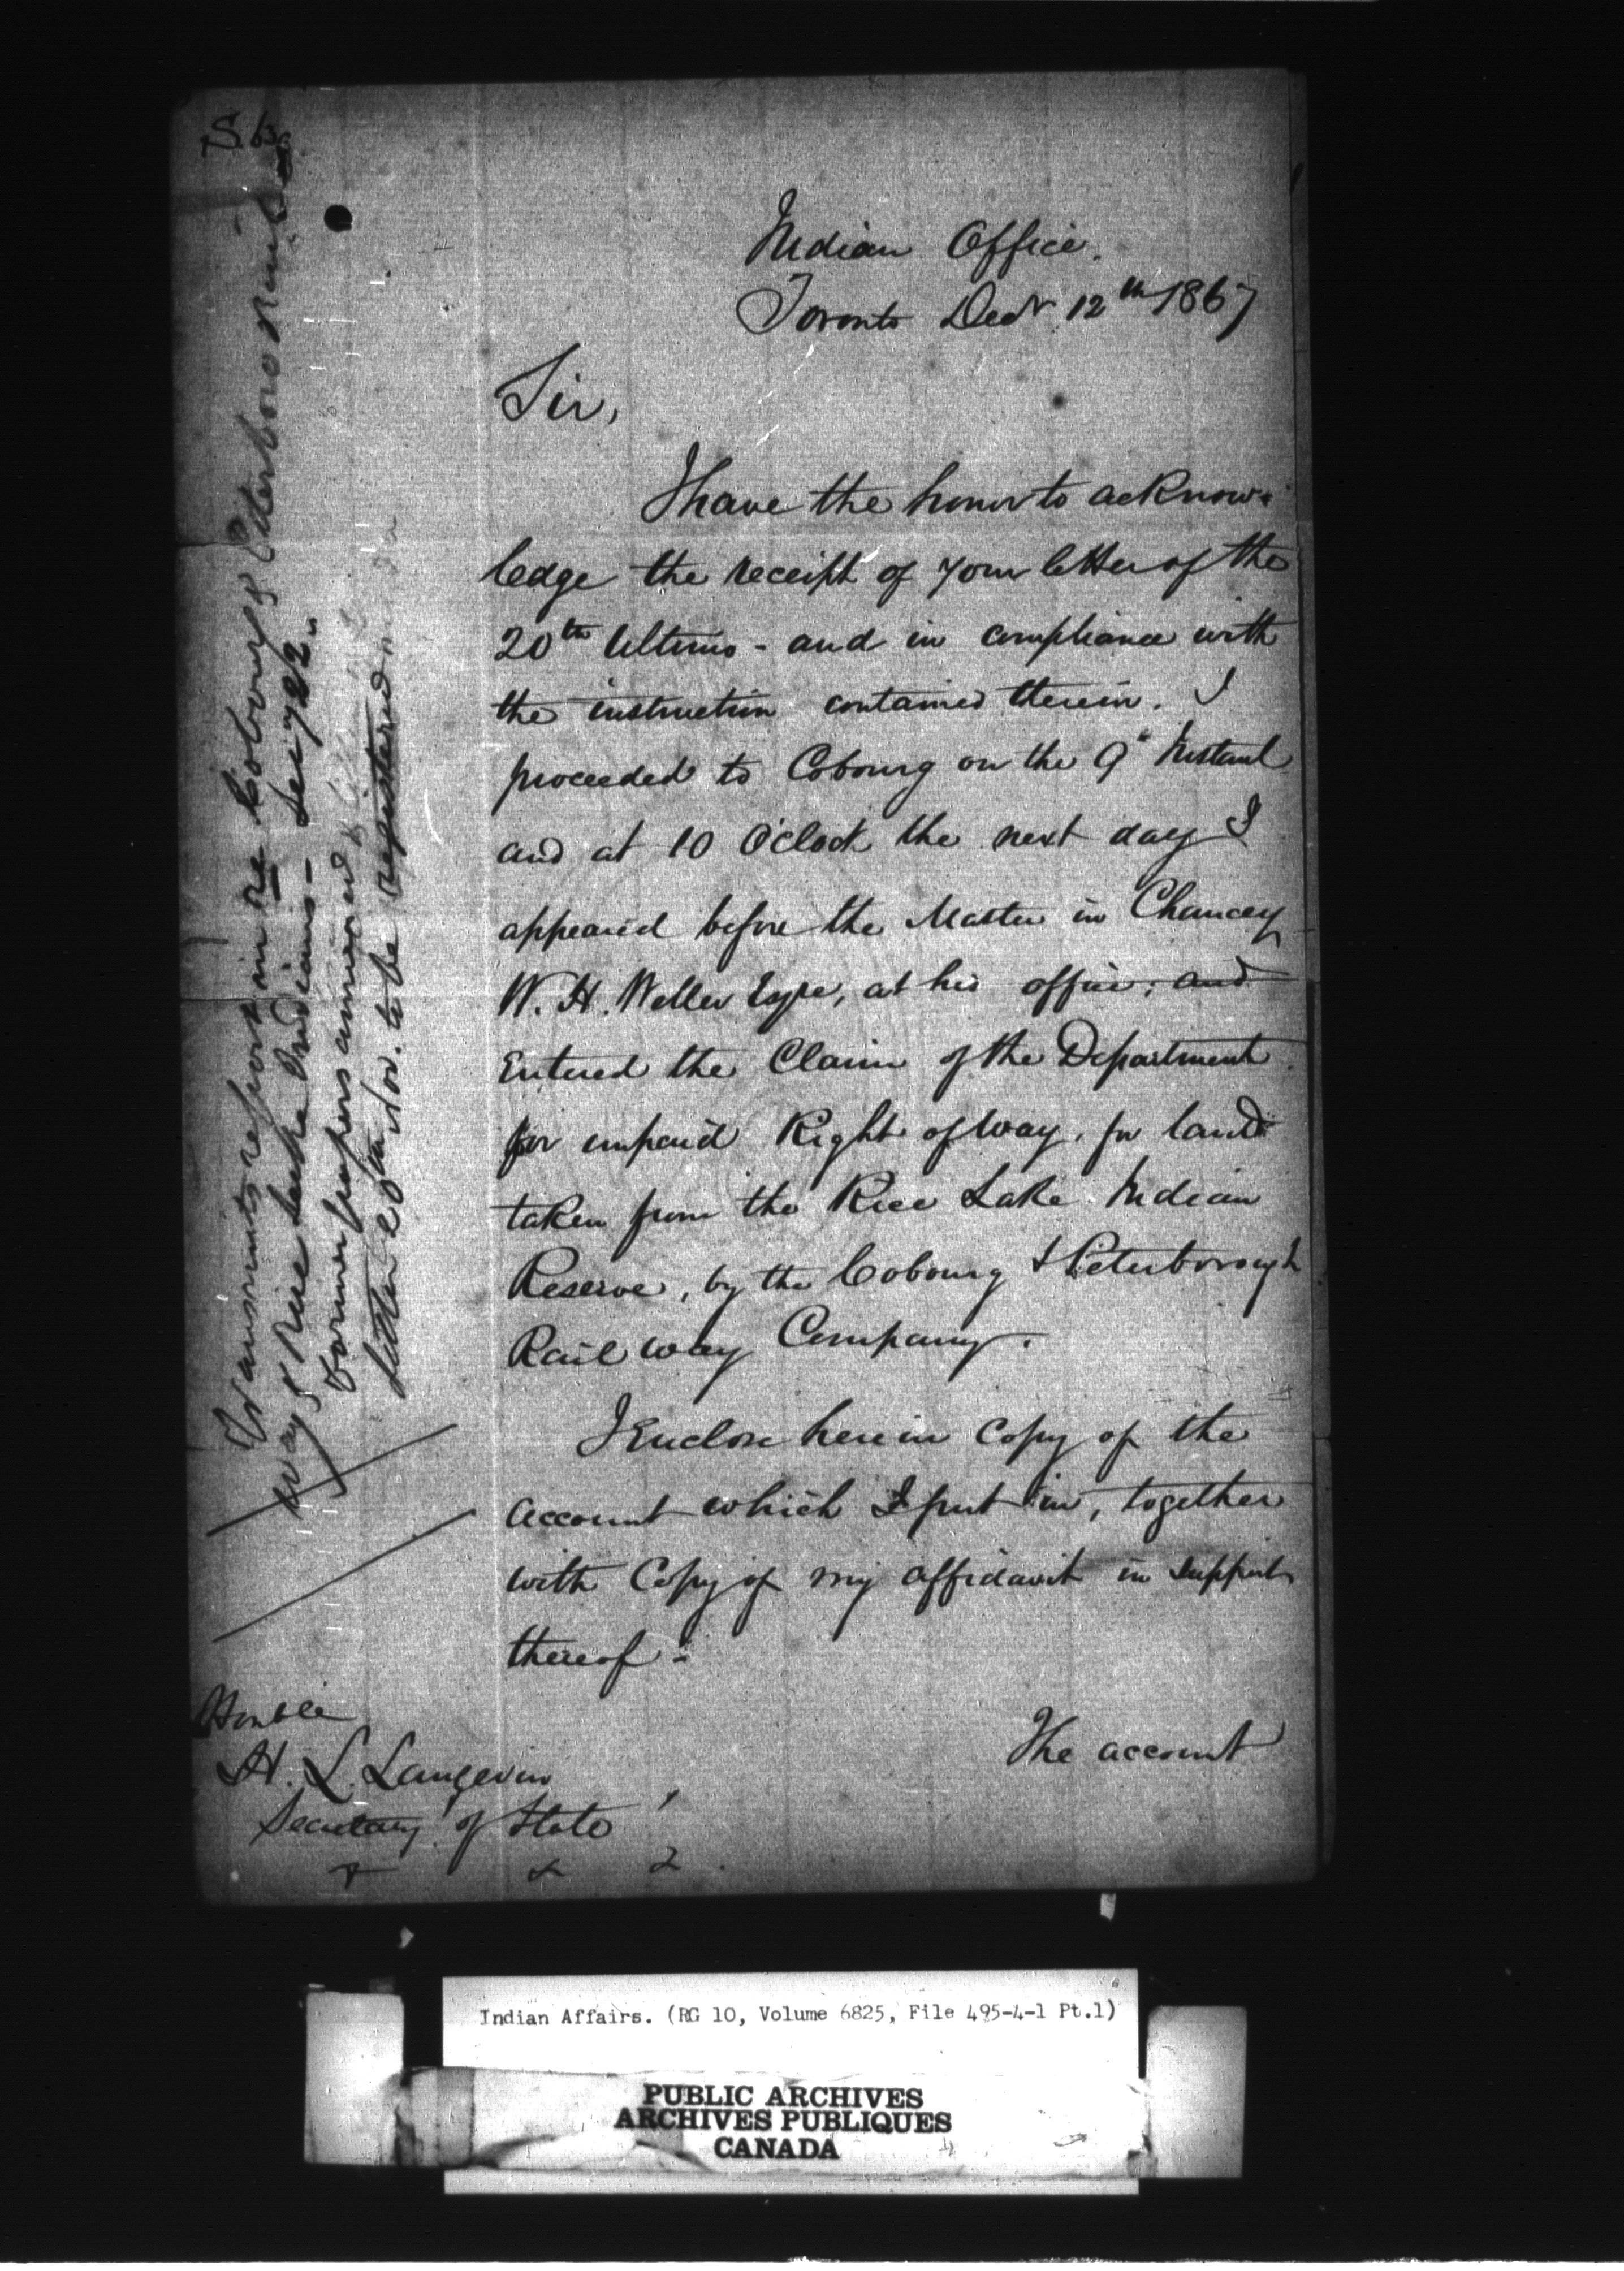 S. 63
Indian Office.
Toronto Decr 12th 1867
Sir,
I have the honor to acknow-
ledge the receipt of your letter of the
20th Ultimo - and in compliance with
the instruction contained therein. I
proceeded to Cobourg on the 9" Instant
and at 10 O'Clock the next day I
appeared before the Master in Chancey
W. H. Weller Esqre, at his office; and
Entered the Claim of the Department
for unpaid Right of Way, for land
taken from the Rice Lake Indian
Reserve, by the Cobourg & Peterborough
Railway Company.
I Enclose herein Copy of the
account which I put in, together
with Copy of my affidavit in support
thereof -
The account
Honble
H. L. Langevin
Secretary of State
Transmits report in re Cobourg & Peterboro Rail
way & Rice Lake Indians -
Former papers annexed &
letter 20th Nov. to be registered
Indian Affairs. (RG 10, Volume 6825, File 495-4-1 Pt.1)
PUBLIC ARCHIVES
ARCHIVES PUBLIQUES
CANADA